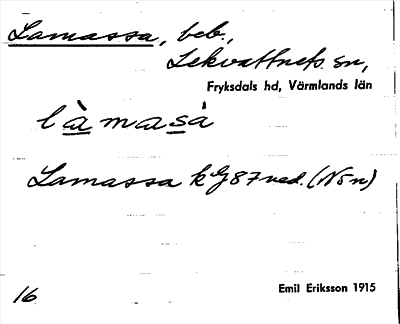 Lamassa, beb.,
Lekvattnets sn,
Fryksdals hd, Värmlands län
làmasà
Lamassa k G 87 ned. (N5n)
16
Emil Eriksson 1915